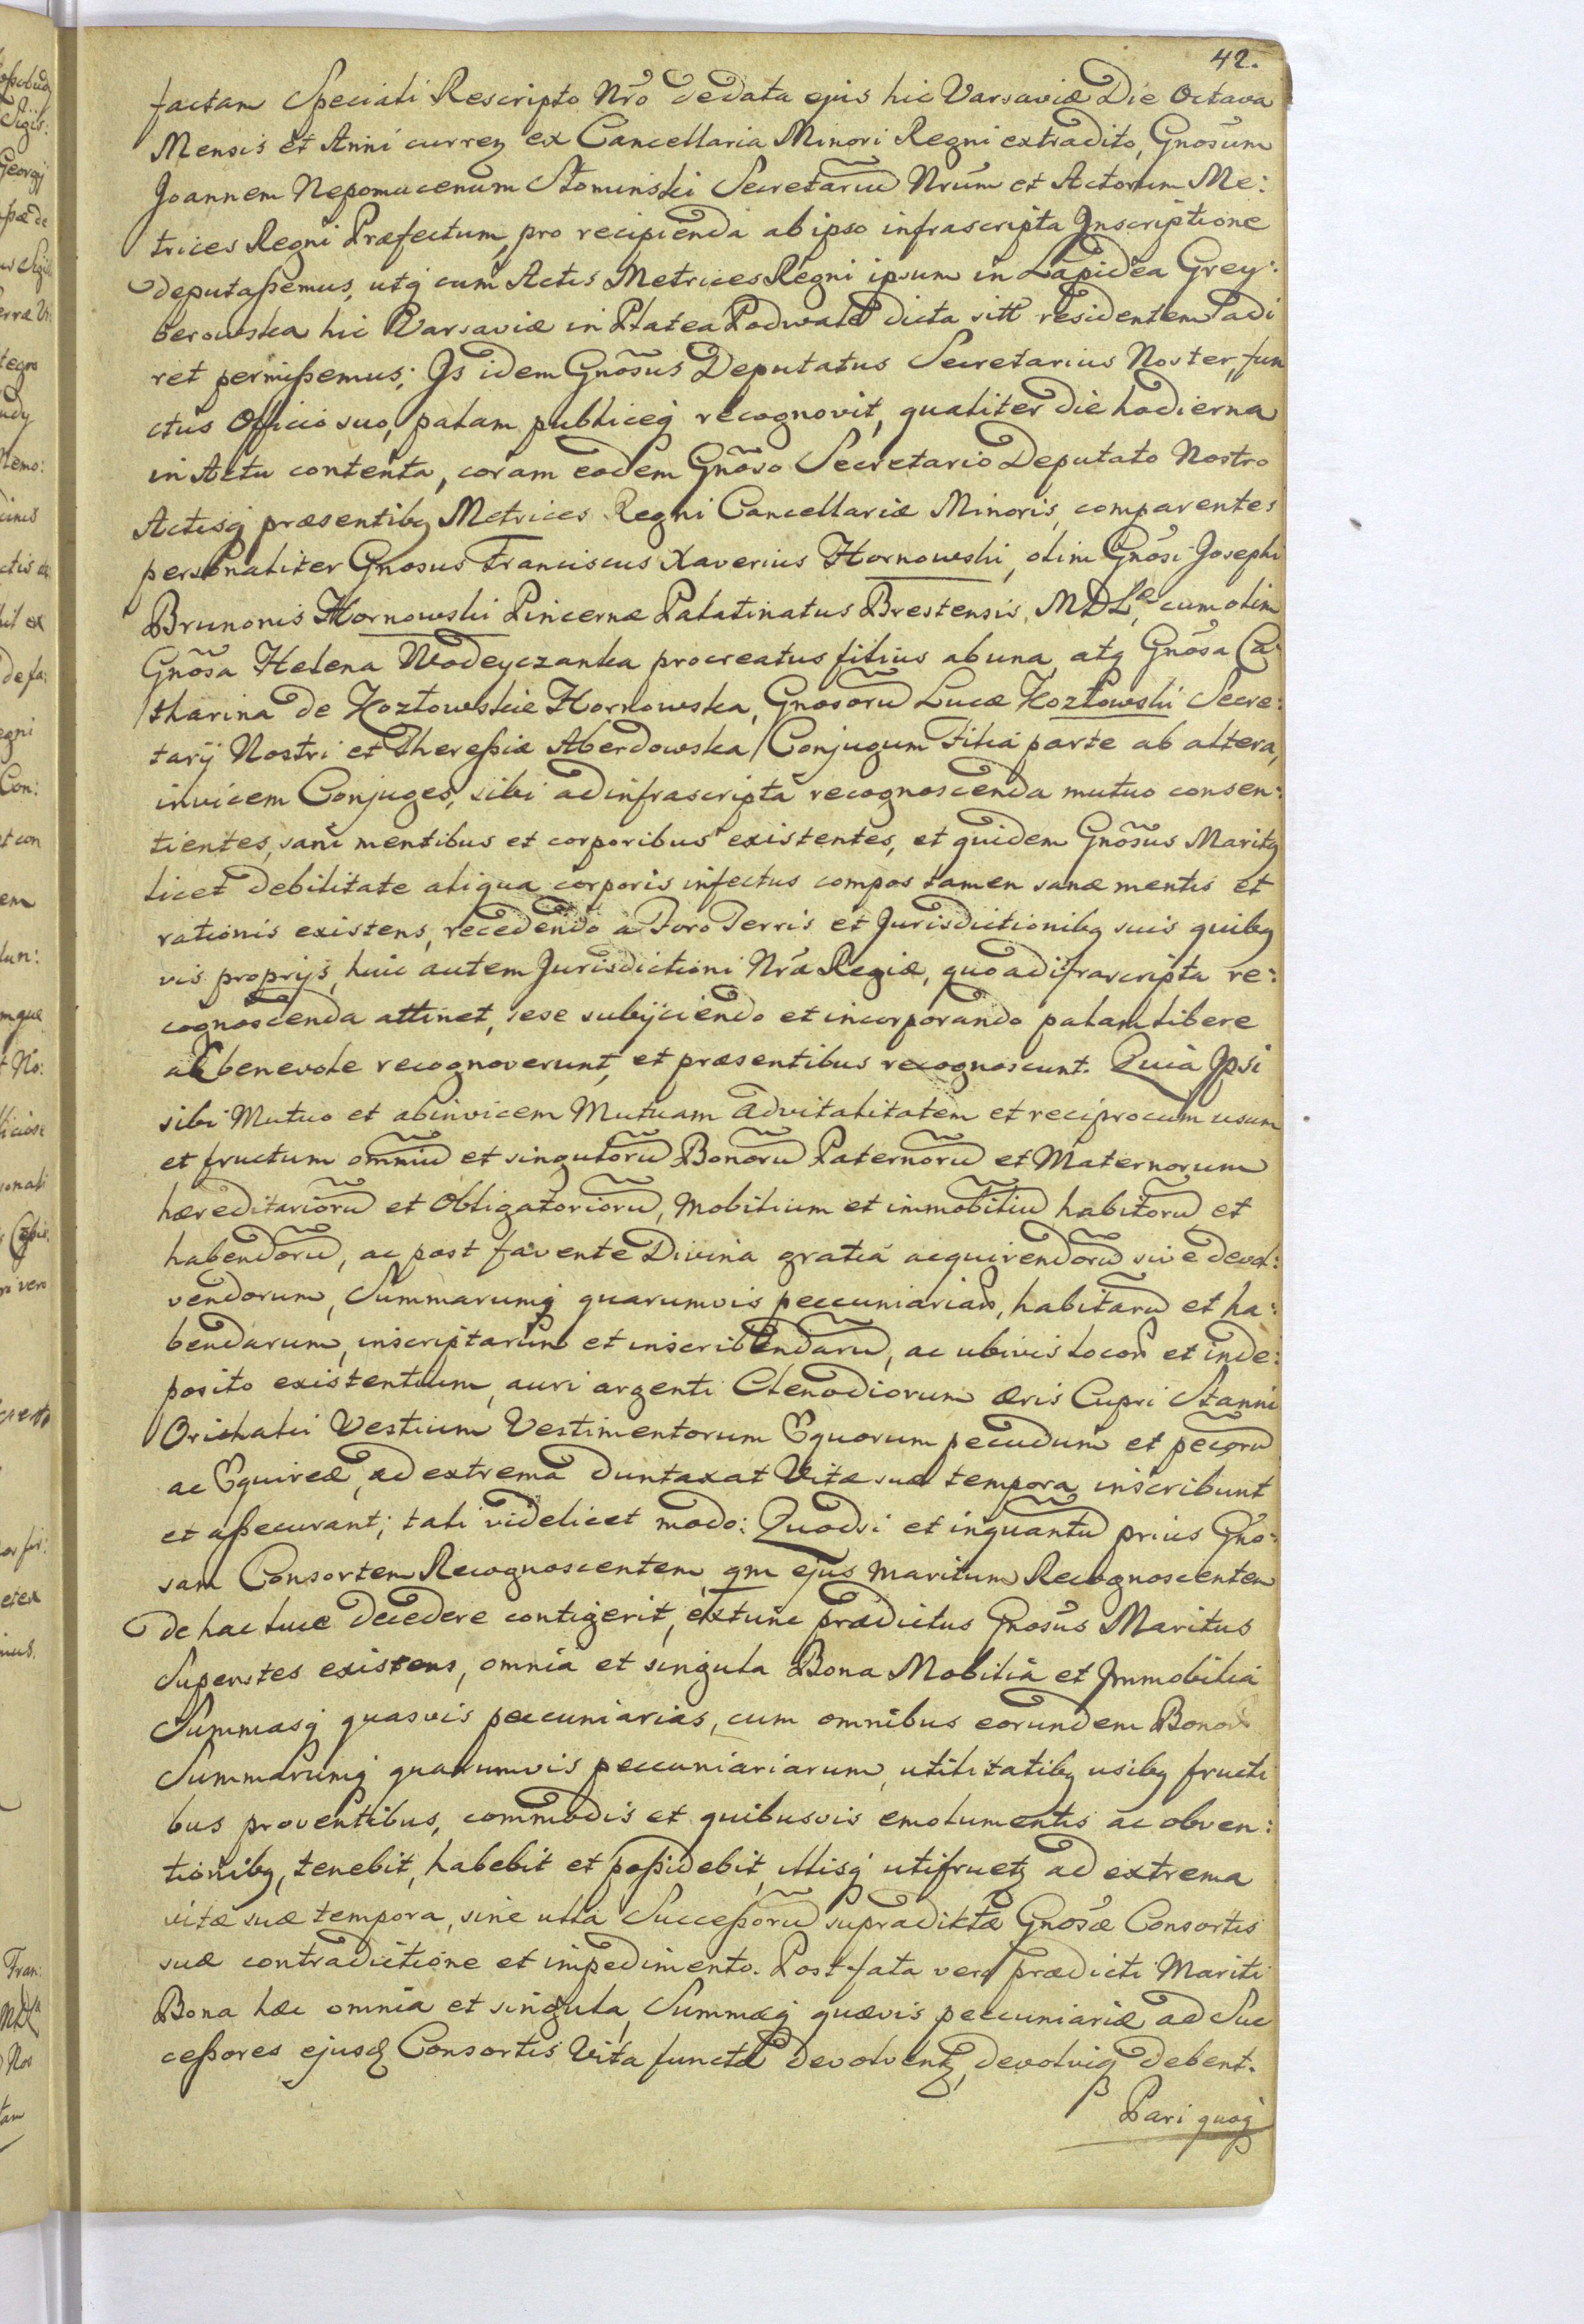 42.
factam Speciali Rescripto Nrõ de data ejus hic Varsaviæ Die Octava
Mensis et Anni curreñ ex Cancellaria Minori Regni extradito, Gnosum
Joannem Nepomucenum Słominski Secretariũ Nrũm et Actorum Me:
trices Regni Præfectum, pro recipienda ab ipso infrascripta Inscriptione
deputaßemus, utq cum Actis Metrices Regni ipsum in Lapidea Grey:
berowska hic Varsaviæ in Platea Podwale dicta sitt residentem adi
ret permißemus; Is idem Gnõsus Deputatus Secretarius Noster, fun
ctus Officio suo, palam publiceq recognovit, qualiter die hodierna
in Actu contenta, coram eodem Gnõso Secretario Deputato Nostro
Actisq præsentibq Metrices Regni Cancellariæ Minoris, comparentes
personaliter Gnosus Franciscus Xaverius Hornowski, olim Gnõsi Josephi
Brunonis Hornowski Pincernæ Palatinatus Brestensis, MDLæ, cum olim
Gnõsa Helena Wodeyczanka procreatus filius ab una, atq Gnõsa Ca:
tharina de Kozłowskie Hornowska, Gnosorũ Lucæ Kozłowski Secre:
tarij Nostri et Thereßiæ Aberdowska / Conjugum Filia parte ab altera,
invicem Conjuges, sibi ad infrascripta recognoscenda mutuo consen:
tientes, sani mentibus et corporibus existentes, et quidem Gnõsus Maritq
licet debilitate aliqua corporis infectus compos tamen sanæ mentis et
rationis existens, recedendo a Foro Terris et Jurisdictionibq suis quibq
vis proprijs, huic autem Jurisdictioni Nrã Regiæ, quo ad ifrascripta re:
cognoscenda attinet, sese subijciendo et incorporando palam libere
ac benevole recognoverunt, et præsentibus recognoscunt. Quia Ipsi
sibi Mutuo et abinvicem Mutuam advitalitatem et reciprocum usum
et fructum omniũ et singulorũ Bonorũ Paternorũ et Maternorum
hæreditariorũ et Obligatoriorũ, Mobilium et immobiliũ habitorũ et
habendorũ, ac post favente Divina gratia acquirendorũ sive devol:
vendorum, Summarumq quarumvis peccuniariar, habitarũ et ha:
bendarum, inscriptarum et inscribendarũ, ac ubivis locor et in de:
posito existentium, auri argenti Clenodiorum æris Cupri Stanni
Orichalci Vestium Vestimentorum Equorum pecudum et pecorũ
ac Equireæ, ad extrema duntaxat Vitæ suæ tempora inscribunt
et aßecurant; tali videlicet modo: Quodsi et inquantũ prius Gno:
sam Consortem Recognoscentem, qm ejus Maritum Recognoscentem
de hac luce decedere contigerit, extunc prædictus Gnosus Maritus
Superstes existens, omnia et singula Bona Mobilia et Immobilia
Summasq quasvis peccuniarias, cum omnibus eorundem Bonor
Summarumq quarumvis peccuniariarum, utilitatibq usibq fructi
bus proventibus, commodis et quibusvis emolumentis ac obven:
tionibq, tenebit, habebit et poßidebit, illisq utifruetq ad extrema
vitæ suæ tempora, sine ulla Succeßorũ supradiktæ Gnosæ Consortis
suæ contradictione et impedimento. Post fata vero prædicti Mariti
Bona hæc omnia et singula, Summæq quævis peccuniariæ ad Suc
ceßores ejusd Consortis Vita functæ devolventq, devolviq debent.
Pari quoq